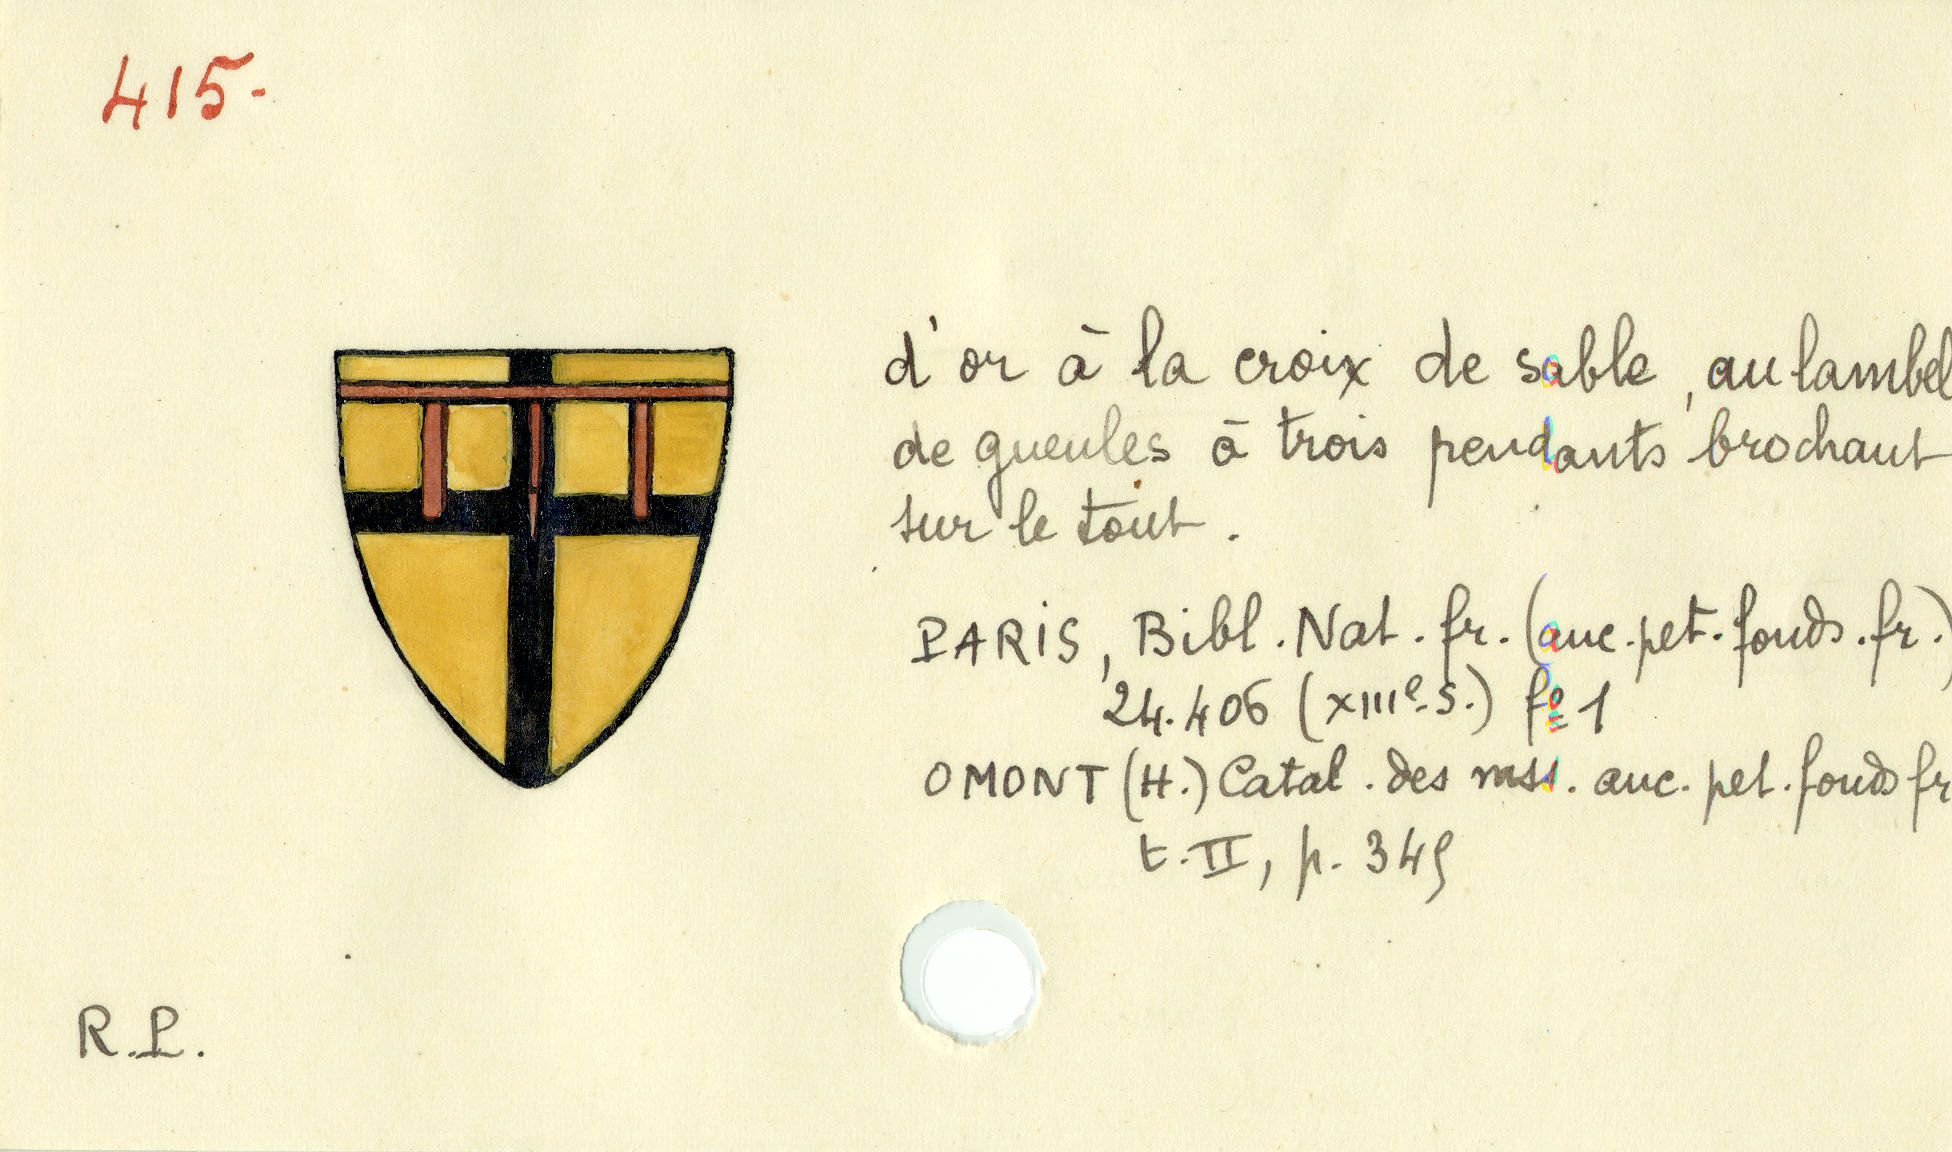 415-
d'or à la croix de sable, au lambel
de gueules à trois pendants brochant
sur le tout.
PARIS, Bibl. Nat. fr. (anc. pet. fonds. fr.)
24.406 (XIIIe. S.) fº 1
OMONT (H.) Catal. des mss. anc. pet. fonds fr
t. II, p. 349
R.P.